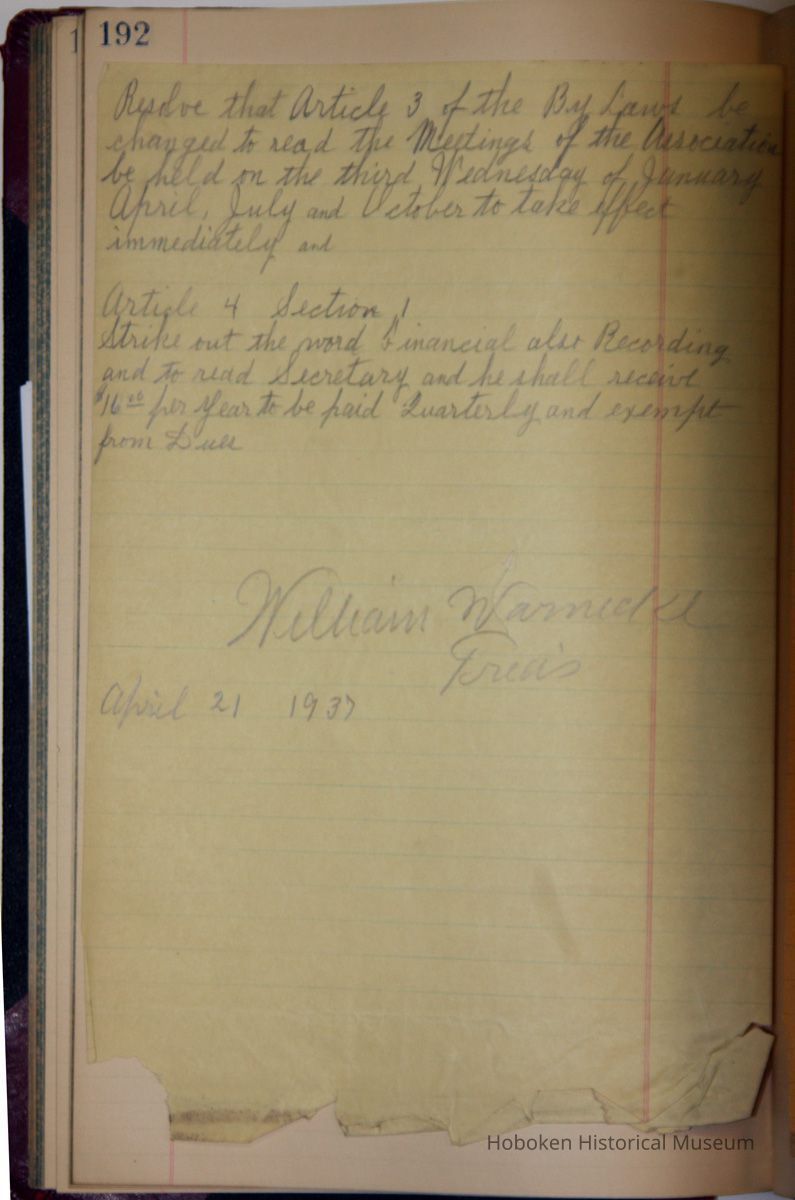 192
Resolve that Article 3 of the By Laws be
changed to read the Meetings of the Association
be held on the third Wednesday of January
April, July and October to take effect
immediately and
Article 4 Section 1
Strike out the word Financial also Recording
and to read Secretary and he shall receive
$16 00 per Year to be paid Quarterly and exempt
from Dues
William Warnecke
April 21 1937
Hoboken Historical Museum